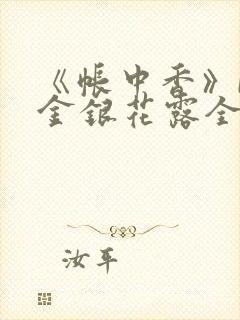 《帐中香》
金银花露全
汝平